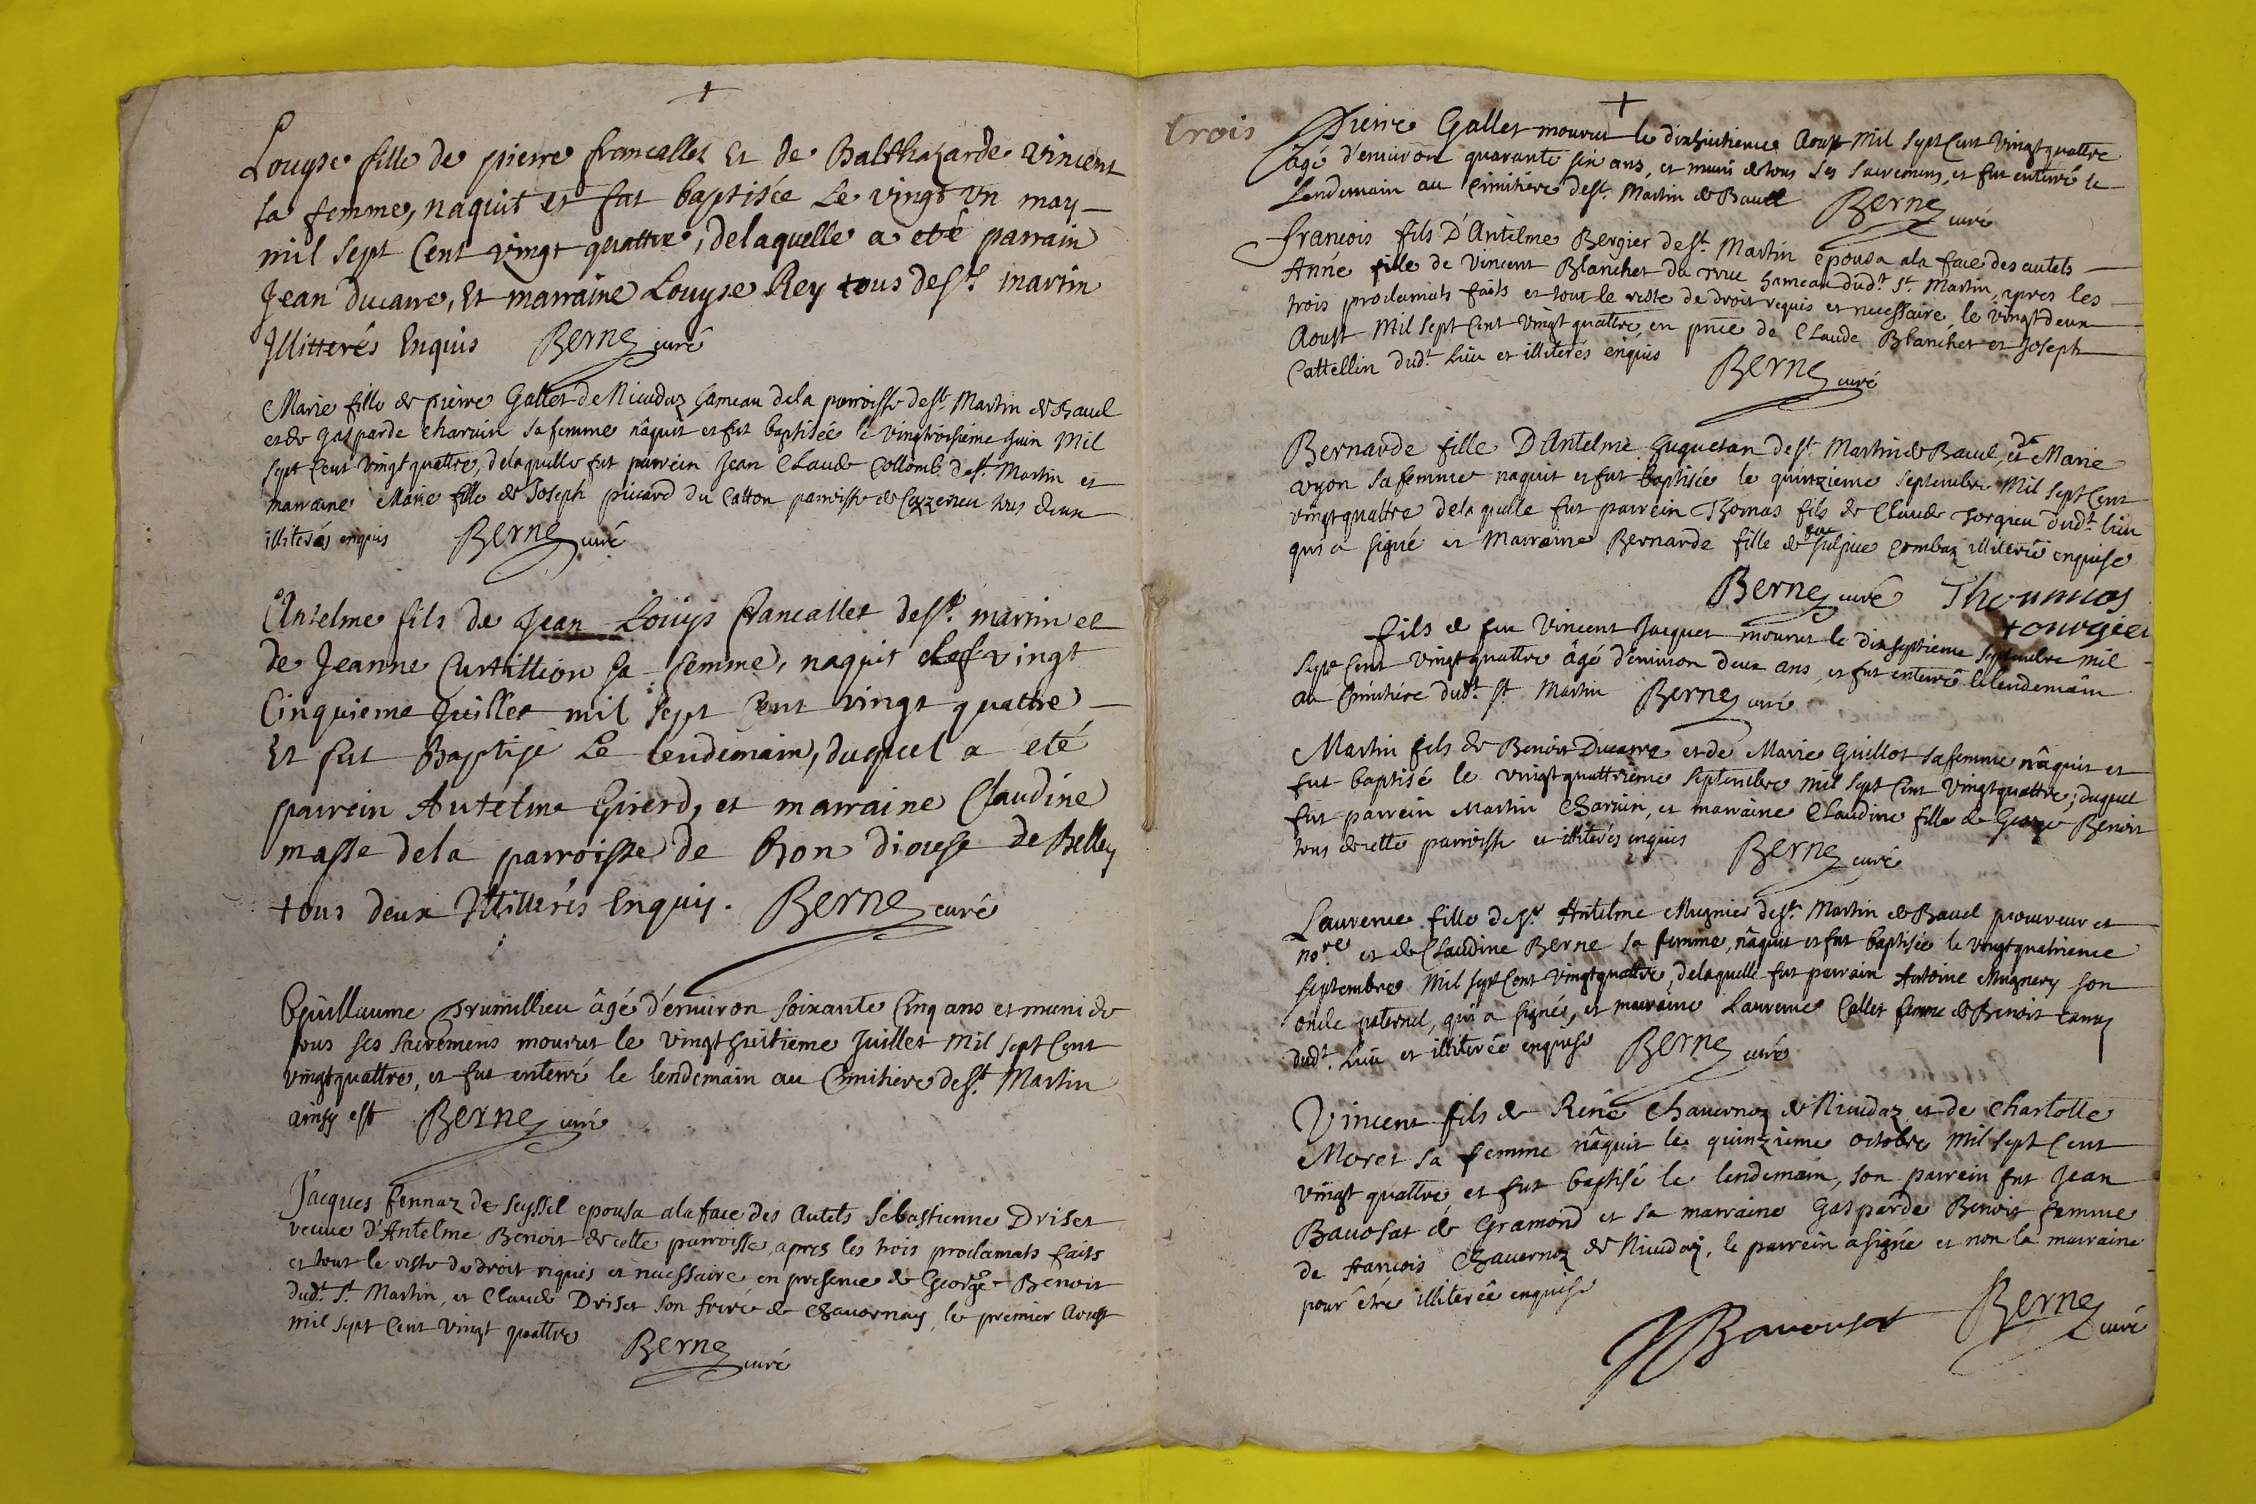 +
Louyse fille de pierre francallet Et de Balthazarde vincent
sa femme, naquit et fut baptisée Le vingt un may
mil sept Cent vingt quattre, delaquelle a eté parrain
Jean ducarre, Et marraine Louyse Rey tous de st. martin
Illitterés Enquis Berne curé
Marie fille de pierre Gallet de hameau dela parroisse de st. Martin de Bavel
et de gasparde charvin sa femme nâquit et fut baptisée le vingttroisième juin Mil
sept Cent vingt quattre, delaquelle fut parrein Jean Claude Collomb de st. Martin et
marraine Marie fille de Joseph picard du Catton parroisse de tous deux
illiterés enquis Berne curé
Antelme fils de Jean Louys francallet de st. martin et
de Jeanne Curtillion sa femme, naquit le vingt
Cinquieme Juillet mil sept Cent vingt quattre
Et fut Baptisé Le lendemain, duquel a eté
parrein Antelme Girerd, et marraine Claudine
masse dela parroisse de diocese de Belley
tous deux Illitterés Enquis. Berne curé
Guillaume Prumillieu âgé d'environ soixante Cinq ans et muni de
tous ses sacremens mourut le vingt huitieme Juillet Mil sept Cent
vingtquattre, et fut enterré le lendemain au Cimitiere de st. Martin
ainsy est Berne curé
Jacques fennaz de seyssel epousa ala face des Autels Sebastienne Driset
veuve d'Antelme Benoit de cette parroisse, apres les trois proclamats faits
et tout le reste de droit requis et necessaire en presence de George Benoit
dudt. st. Martin, et Claude Driset son frere de Chavornay, le premier Aoust
mil sept Cent vingt quattre Berne curé
trois
+
Pierre Gallet mourut le dixhuitieme Aoust Mil sept Cent vingt quattre
âgé d'environ quarante six ans, et muni de tous ses sacremens, et fut enterré le
Lendemain au Cimitiere de st. Martin de Bavel Berne curé
francois fils D'Antelme Bergier de st. Martin épousa ala face des autels
Anne fille de Vincent Blanchet du hameau dudt. st. Martin, apres les
trois proclamats faits et tout le reste de droit requis et necessaire, le vingtdeux
Aoust Mil sept Cent vingt quattre, en pnce de Claude Blanchet et Joseph
Cattellin dudt. Lieu et illiterés enquis Berne curé
Bernarde fille D'Antelme huguetan de st. Martin de Bavel, et de Marie
uyon sa femme naquit et fut baptisée le quinzieme septembre Mil sept Cent
vingtquattre delaquelle fut parrein Thomas fils de Claude dudt. lieu
qui a signé et Marraine Bernarde fille de feu sulpice Combaz illiterée enquise
Berne curé Thoumas
tourgieu
fils de feu Vincent Jacquet mourut le dixseptieme septembre mil
sept Cent vingt quattre âgé d'environ deux ans, et fut enterré le lendemain
au Cimitiere dudt. st. Martin Berne curé
Martin fils de Benoit Ducarre et de Marie Guillot sa femme nâquit et
fut baptisé le vingtquattrieme septembre Mil sept Cent vingtquattre; duquel
fut parrein Martin Charvin, et marraine Claudine fille de George Benoit
tous de cette parroisse et illiterés enquis Berne curé
Laurence fille de sr. Antelme Mugnier de st. Martin de Bavel procureur et
nore. et de Claudine Berne sa femme, nâquit et fut baptisée le vingtquatrieme
septembre Mil sept Cent vingtquattre, delaquelle fut parrain Antoine Mugnery son
oncle paternel, qui a signés, et marraine Laurence Callet femme de Benoit
dudt. Lieu et illiterée enquise Berne curé
Vincent fils de René Chavernoz de et de Charlotte
Moret sa femme nâquit le quinzieme octobre Mil sept Cent
vingt quattre et fut baptisé le lendemain, son parrein fut Jean
Bavosat de Gramond et sa marraine Gasparde Benoit femme
de francois Chavernoz de le parrein a signé et non la marraine
pour être illiterée enquise
J Bavousat Berne curé